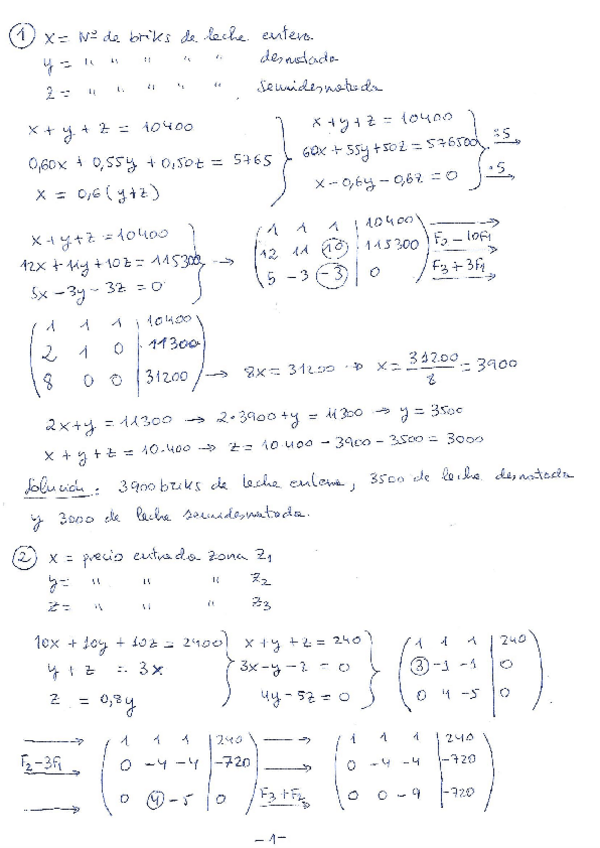 ① x = Nº de briks de leche entera
y = " " " " " desnatada
z = " " " " " semidesnatada
x + y + z = 10400
0,60x + 0,55y + 0,50z = 5765
x = 0,6(y+z)
x + y + z = 10400
60x + 55y + 50z = 576500 :5
x - 0,6y - 0,6z = 0 ·5
x + y + z = 10400
12x + 11y + 10z = 115300
5x - 3y - 3z = 0
→ ( 1 1 1 | 10400
12 11 10 | 115300 F2 - 10F1
5 -3 -3 | 0 ) F3 + 3F1
( 1 1 1 | 10400
2 1 0 | 11300
8 0 0 | 31200 ) → 8x = 31200 → x = 31200/8 = 3900
2x + y = 11300 → 2·3900 + y = 11300 → y = 3500
x + y + z = 10.400 → z = 10.400 - 3900 - 3500 = 3000
Solución: 3900 briks de leche entera, 3500 de leche desnatada
y 3000 de leche semidesnatada.
② x = precio entrada zona Z1
y = " " " Z2
z = " " " Z3
10x + 10y + 10z = 2400
y + z = 3x
z = 0,8y
x + y + z = 240
3x - y - z = 0
4y - 5z = 0
( 1 1 1 | 240
3 -1 -1 | 0
0 4 -5 | 0 )
→ ( 1 1 1 | 240
F2 - 3F1 0 -4 -4 | -720
→ 0 4 -5 | 0 ) F3 + F2
( 1 1 1 | 240
0 -4 -4 | -720
0 0 -9 | -720 )
- 1 -